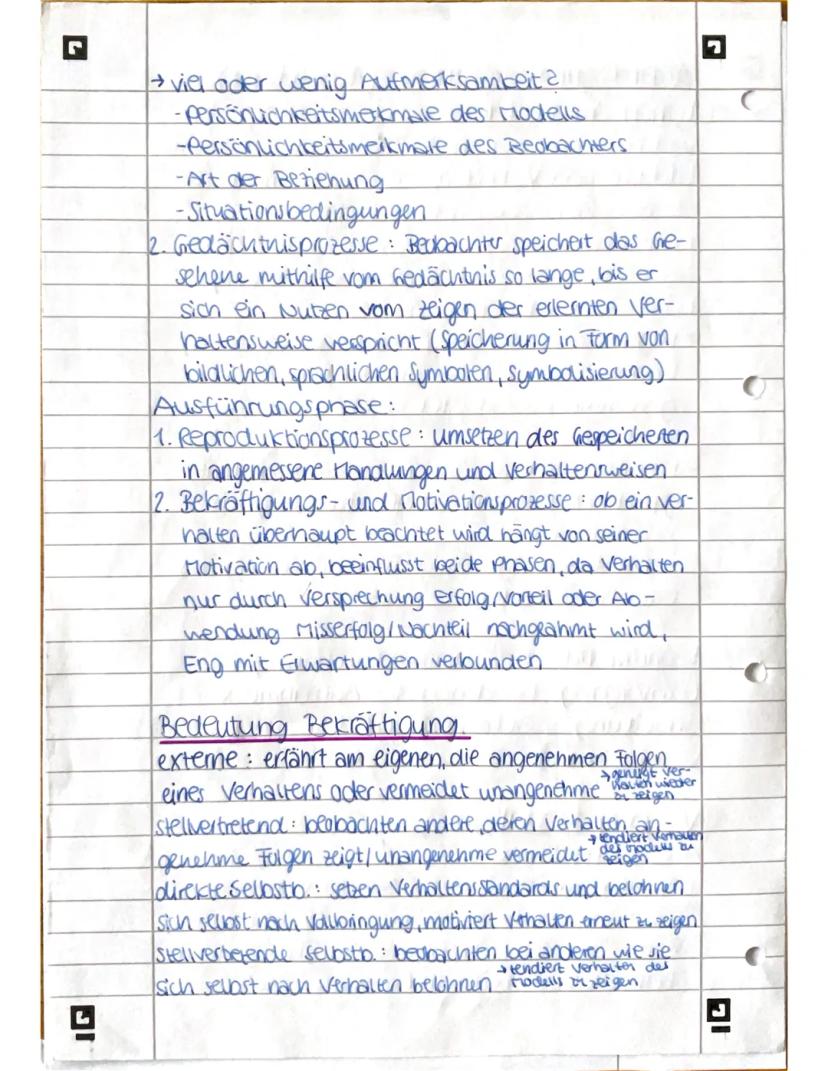 → viel oder wenig Aufmerksamkeit?
- Persönlichkeitsmerkmale des Modells
- Persönlichkeitsmerkmale des Beobachters
- Art der Beziehung
- Situationsbedingungen
2. Gedächtnisprozesse : Beobachter speichert das Ge-
sehene mithilfe vom Gedächtnis so lange, bis er
sich ein Nutzen vom zeigen der erlernten Ver-
haltensweise verspricht (Speicherung in Form von
bildlichen, sprachlichen Symbolen, Symbolisierung)
Ausführungsphase :
1. Reproduktionsprozesse : umsetzen des Gespeicherten
in angemessene Handlungen und Verhaltensweisen
2. Bekräftigungs- und Motivationsprozesse : ob ein Ver-
halten überhaupt beachtet wird hängt von seiner
Motivation ab, beeinflusst beide Phasen, da Verhalten
nur durch Versprechung Erfolg/Vorteil oder Ab-
wendung Misserfolg/Nachteil nachgeahmt wird,
Eng mit Erwartungen verbunden
Bedeutung Bekräftigung.
externe : erfährt am eigenen, die angenehmen Folgen
eines Verhaltens oder vermeidet unangenehme → geneigt Ver-
halten wieder
zu zeigen
stellvertretend : beobachten andere, deren Verhalten an-
genehme Folgen zeigt/unangenehme vermeidet → tendiert Verhalten
des Modells zu
zeigen
direkte Selbstb. : setzen Verhaltensstandards und belohnen
sich selbst nach Vollbringung, motiviert Verhalten erneut zu zeigen
stellvertretende Selbstb. : beobachten bei anderen wie sie
sich selbst nach Verhalten belohnen → tendiert Verhalten des
Modells zu zeigen